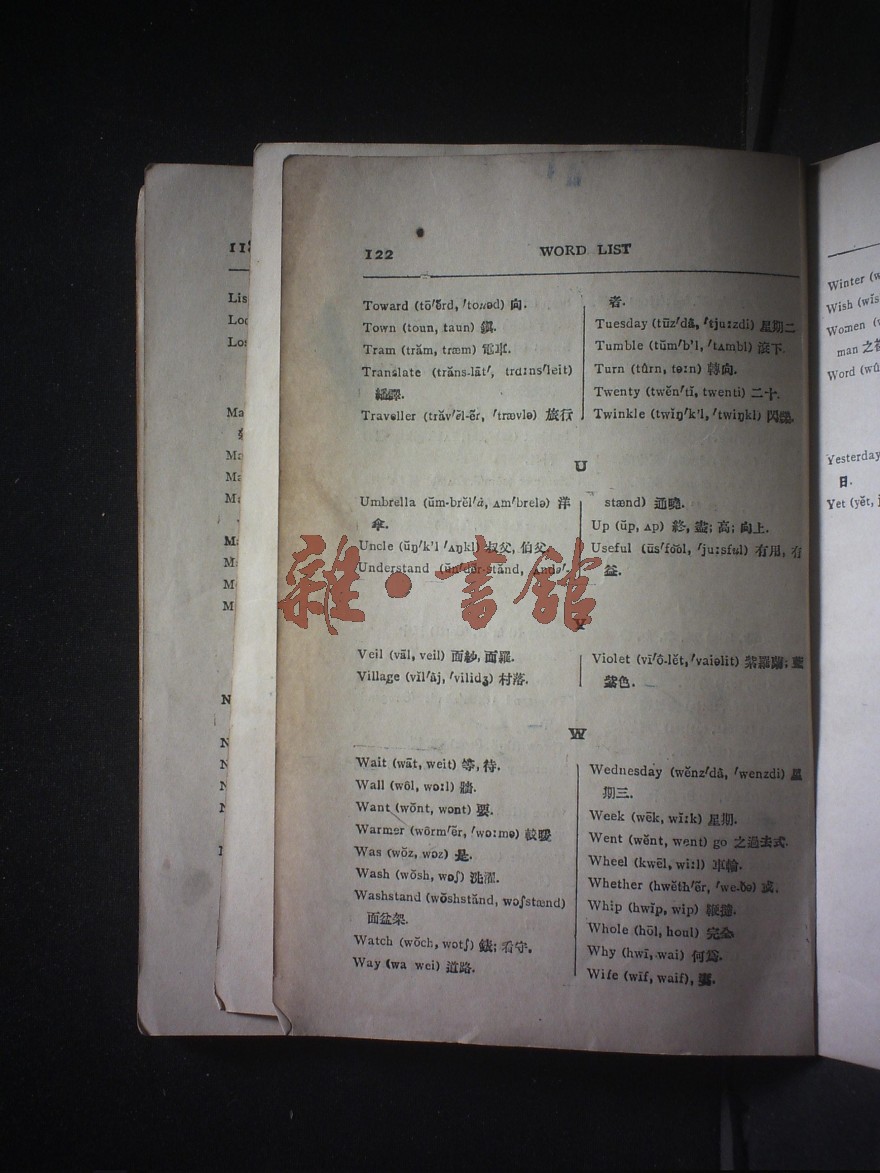 122
WORD LIST
Toward (tō′ẽrd, ′touəd) 向.
Town (toun, taun) 鎭.
Tram (trăm, træm) 電車.
Translate (trăns-lāt′, trɑːns′leit)
繙譯.
Traveller (trăv′ĕl-ẽr, ′trævlə) 旅行
者.
Tuesday (tūz′dȧ, ′tjuːzdi) 星期二
Tumble (tŭm′b'l, ′tʌmbl) 滾下.
Turn (tûrn, təːn) 轉向.
Twenty (twĕn′tĭ, twenti) 二十.
Twinkle (twĭŋ′k'l, ′twiŋkl) 閃爍.
U
Umbrella (ŭm-brĕl′ȧ, ʌm′brelə) 洋
傘.
Uncle (ŭŋ′k'l ′ʌŋkl) 叔父, 伯父.
Understand (ŭn′dẽr-stănd, ʌndə′-
stænd) 通曉.
Up (ŭp, ʌp) 終, 盡; 高; 向上.
Useful (ūs′fŏŏl, ′juːsful) 有用, 有
益.
V
Veil (vāl, veil) 面紗, 面羅.
Village (vĭl′âj, ′vilidʒ) 村落.
Violet (vī′ô-lĕt, ′vaiəlit) 紫羅蘭; 藍
紫色.
W
Wait (wāt, weit) 等, 待.
Wall (wôl, wɔːl) 牆.
Want (wŏnt, wɒnt) 要.
Warmer (wôrm′ẽr, ′wɔːmə) 較暖
Was (wŏz, wɒz) 是.
Wash (wŏsh, wɒʃ) 洗濯.
Washstand (wŏshstănd, wɒʃstænd)
面盆架.
Watch (wŏch, wɒtʃ) 錶; 看守.
Way (wa wei) 道路.
Wednesday (wĕnz′dȧ, ′wenzdi) 星
期三.
Week (wēk, wiːk) 星期.
Went (wĕnt, went) go 之過去式.
Wheel (kwēl, wiːl) 車輪.
Whether (hwĕth′ẽr, ′weðə) 或.
Whip (hwĭp, wip) 鞭撻.
Whole (hōl, houl) 完全.
Why (hwī, wai) 何爲.
Wife (wīf, waif), 妻.
雜·書館
118
Lis
Loc
Winter
Wish (wĭs
Women
man 之複
Word (wû
Yesterday
日.
Yet (yĕt, j